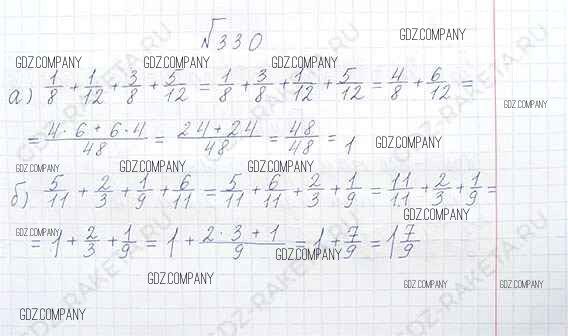 №330
GDZ.COMPANY
GDZ.COMPANY GDZ.COMPANY GDZ.COMPANY
а) 1/8 + 1/12 + 3/8 + 5/12 = 1/8 + 3/8 + 1/12 + 5/12 = 4/8 + 6/12 =
GDZ.COMPANY
= (4·6+6·4)/48 = (24+24)/48 = 48/48 = 1
GDZ.COMPANY
GDZ.COMPANY GDZ.COMPANY GDZ.COMPANY
б) 5/11 + 2/3 + 1/9 + 6/11 = 5/11 + 6/11 + 2/3 + 1/9 = 11/11 + 2/3 + 1/9 =
GDZ.COMPANY
GDZ.COMPANY
= 1 + 2/3 + 1/9 = 1 + (2·3+1)/9 = 1 + 7/9 = 1 7/9
GDZ.COMPANY
GDZ.COMPANY GDZ.COMPANY GDZ.COMPANY
GDZ.COMPANY
GDZ-RAKETA.RU
GDZ-RAKETA.RU
GDZ-RAKETA.RU